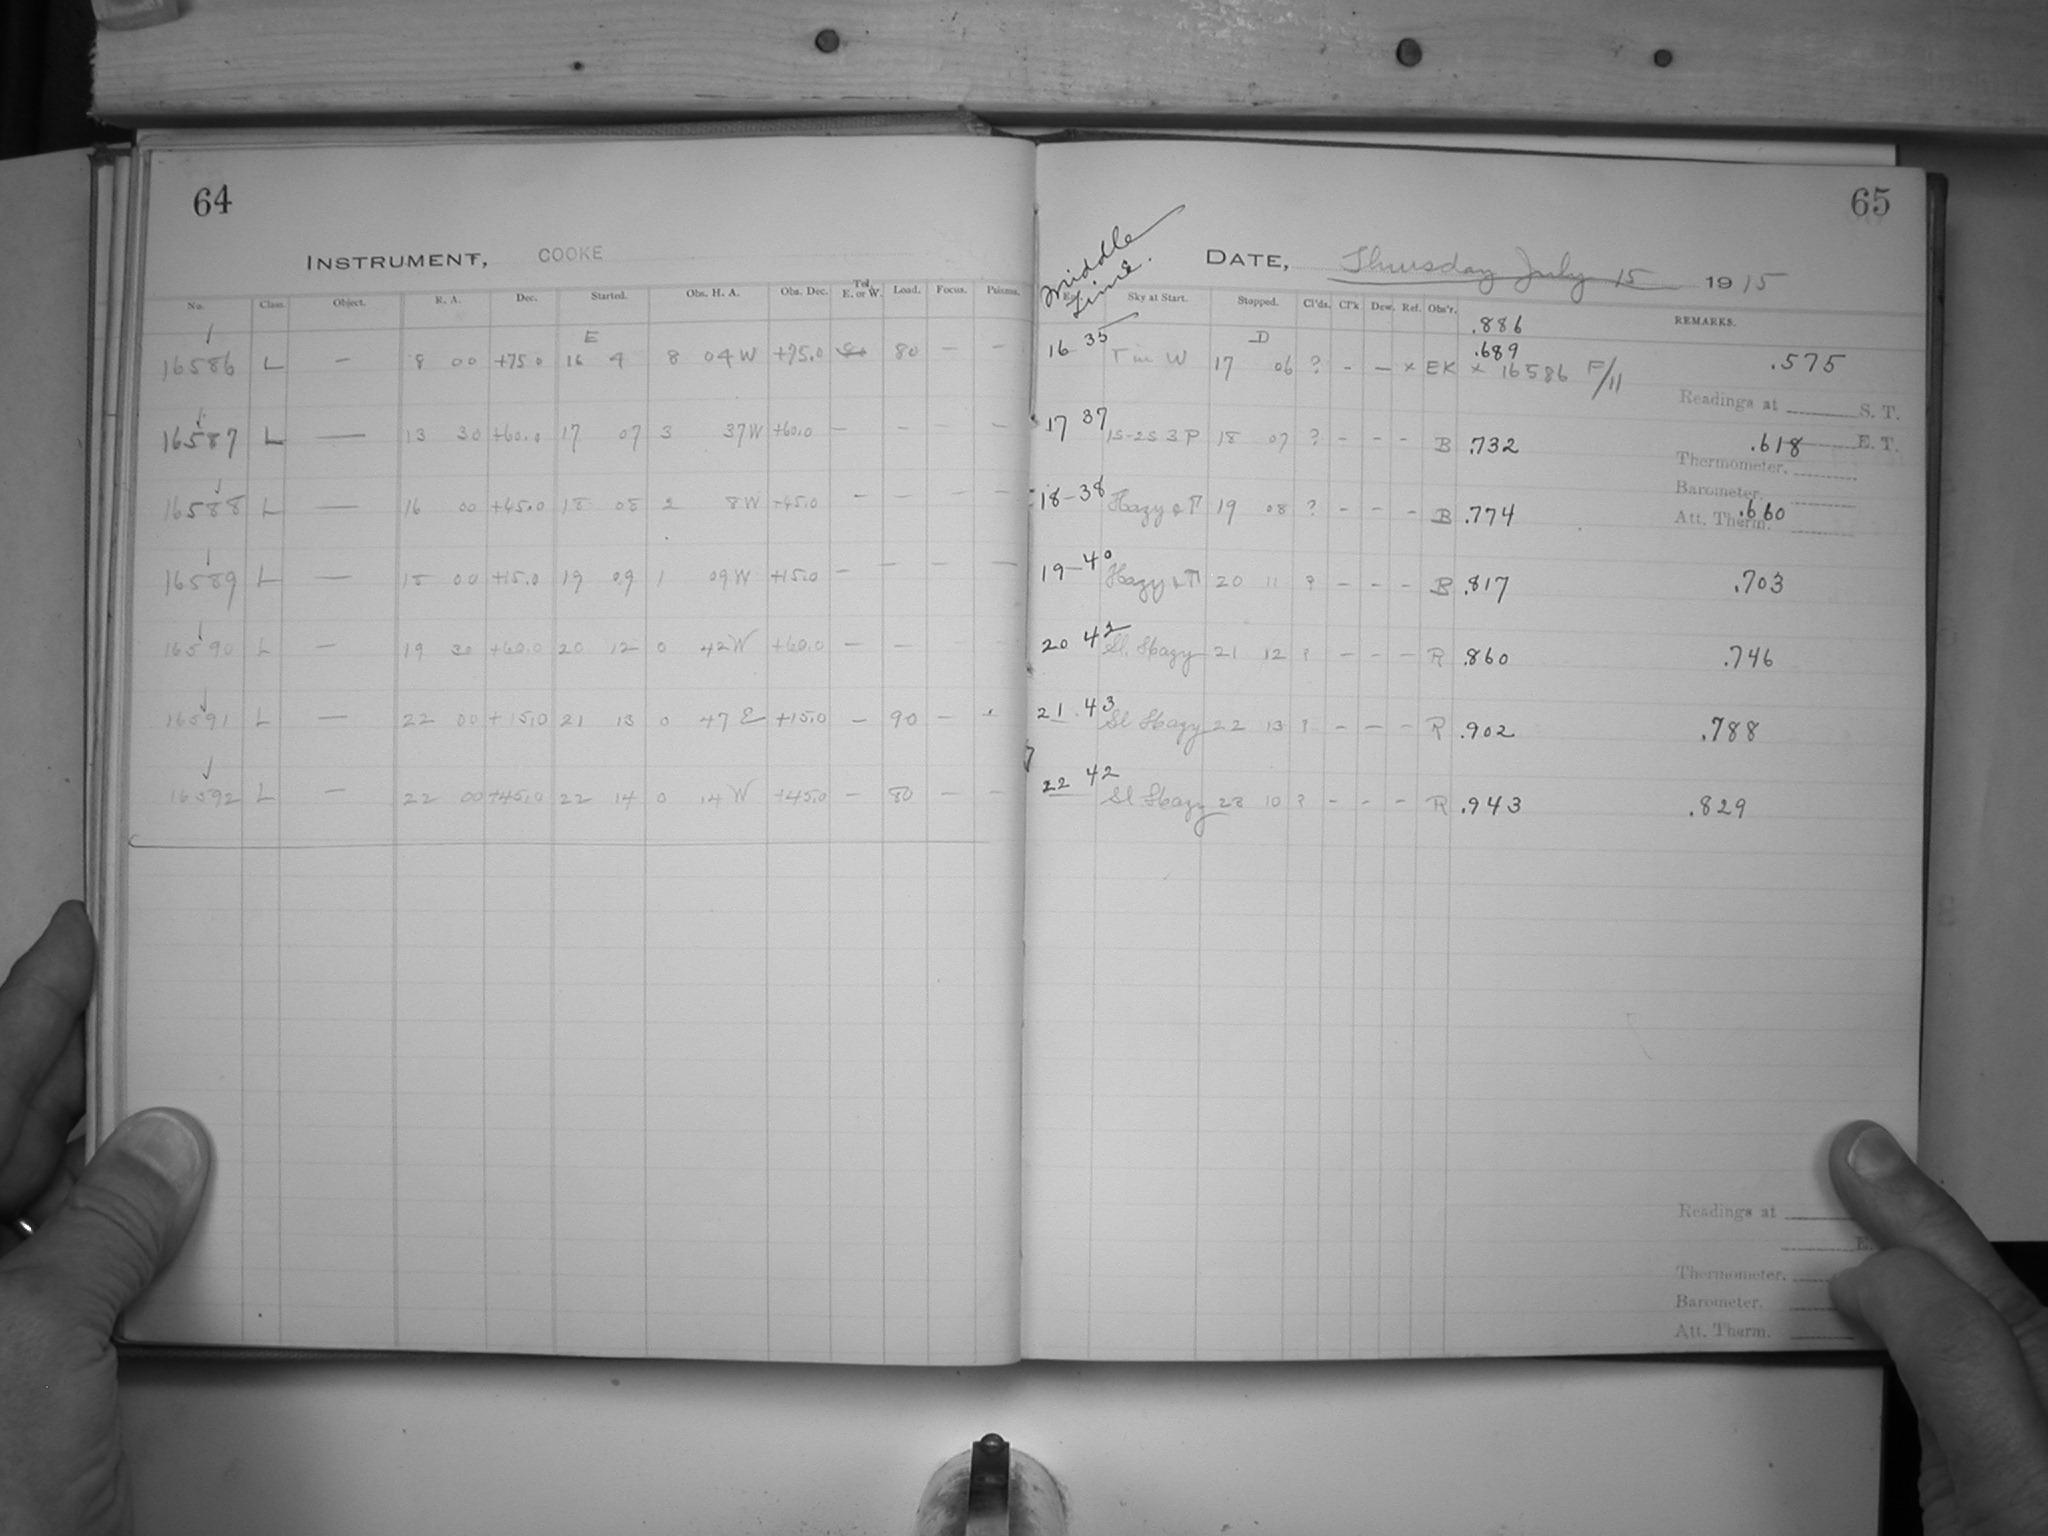 64
65
INSTRUMENT, COOKE
Middle
Time.
DATE, Thursday July 15 1915
No. Class. Object. R. A. Dec. Started. Obs. H. A. Obs. Dec. Tel. E. or W. Load. Focus. Prisms.
Sky at Start. Stopped. Cl'ds. Cl'k Dew. Ref. Obs'r. REMARKS.
.886
E
D
.689
16586 L — 8 00 +75.0 16 4 8 04 W +75.0 80 — — 16 35 T in W 17 06 ? - — × EK × 16586 F/11 .575
Readings at S. T.
16587 L — 13 30 +60.0 17 07 3 37 W +60.0 — — — — 17 37 15-25 3 P 18 07 ? - - - B .732 .618 E. T.
Thermometer.
Barometer.
16588 L — 16 00 +45.0 18 08 2 8 W +45.0 — — — — 18-38 Hazy & T 19 08 ? - - - B .774 .660
Att. Therm.
16589 L — 18 00 +15.0 19 09 1 09 W +15.0 — — — — 19-40 Hazy & T 20 11 ? - - - B .817 .703
16590 L — 19 30 +60.0 20 12 0 42 W +60.0 — — 20 42 Sl. Hazy 21 12 ? - - - R .860 .746
16591 L — 22 00 +15.0 21 13 0 47 E +15.0 — 90 — - 21.43 Sl Hazy 22 13 ? - - - R .902 .788
16592 L — 22 00 +45.0 22 14 0 14 W +45.0 — 80 — — 22 42 Sl Hazy 23 10 ? - - - R .943 .829
Readings at
E.
Thermometer.
Barometer.
Att. Therm.